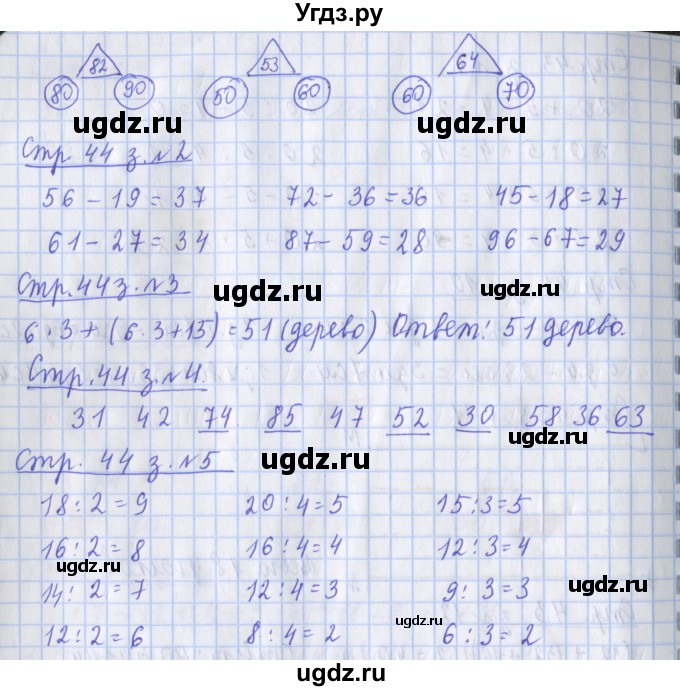 Угдз.ру
82 53 64
80 90 50 60 60 70
ugdz.ru ugdz.ru ugdz.ru
Стр 44 з. №2
56 - 19 = 37 72 - 36 = 36 45 - 18 = 27
61 - 27 = 34 87 - 59 = 28 96 - 67 = 29
ugdz.ru
Стр. 44 з. №3 ugdz.ru
6 · 3 + (6 · 3 + 15) = 51 (дерево) Ответ: 51 дерево.
Стр. 44 з. №4. ugdz.ru ugdz.ru
31 42 74 85 47 52 30 58 36 63
Стр. 44 з. №5 ugdz.ru
18 : 2 = 9 20 : 4 = 5 15 : 3 = 5
16 : 2 = 8 16 : 4 = 4 12 : 3 = 4
ugdz.ru ugdz.ru ugdz.ru
14 : 2 = 7 12 : 4 = 3 9 : 3 = 3
ugdz.ru
12 : 2 = 6 8 : 4 = 2 6 : 3 = 2
ugdz.ru